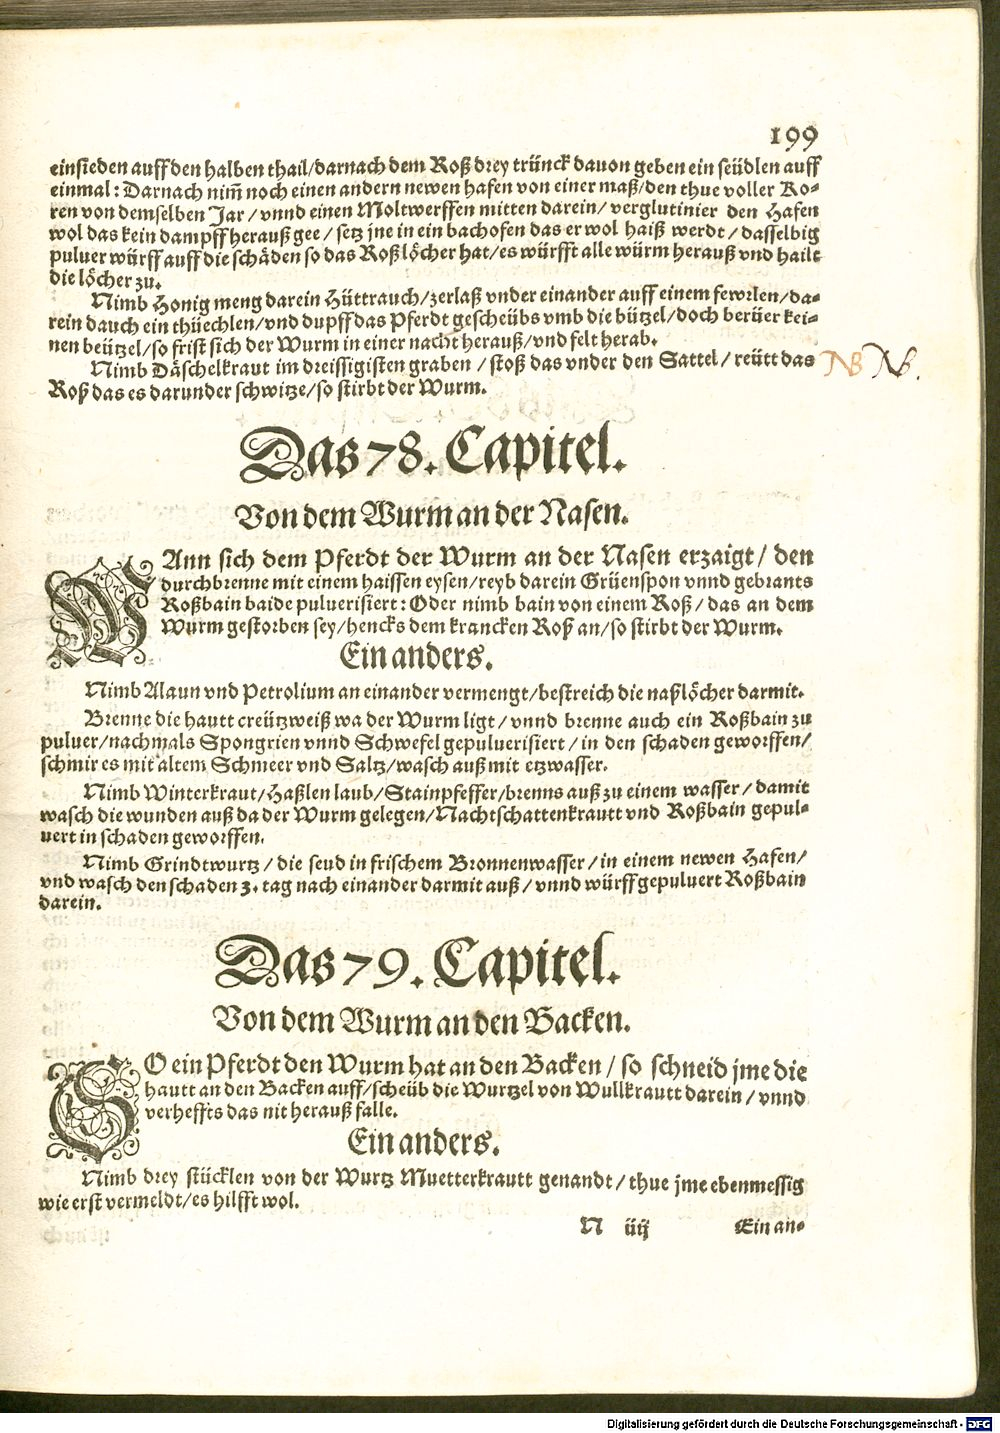 199
einsieden auff den halben thail/darnach dem Roß drey trünck dauon geben ein seüdlen auff
einmal: Darnach nim̃ noch einen andern newen hafen von einer maß/den thue voller Ko-
ren von demselben Jar/vnnd einen Moltwerffen mitten darein/verglutinier den Hafen
wol das kein dampff herauß gee/setz jne in ein bachofen das er wol haiß werdt/dasselbig
puluer würff auff die schäden so das Roß löcher hat/es würfft alle würm herauß vnd hailt
die löcher zu.
Nimb Honig meng darein Hüttrauch/zerlaß vnder einander auff einem fewrlen/da-
rein dauch ein thüechlen/vnd dupff das Pferdt gescheübs vmb die bützel/doch berüer kei-
nen beützel/so frist sich der Wurm in einer nacht herauß/vnd felt herab.
Nimb Däschelkraut im dreissigisten graben/stoß das vnder den Sattel/reütt das NB NB.
Roß das es darunder schwitze/so stirbt der Wurm.
Das 78. Capitel.
Von dem Wurm an der Nasen.
WAnn sich dem Pferdt der Wurm an der Nasen erzaigt/den
durchbrenne mit einem haissen eysen/reyb darein Grüenspon vnnd gebrants
Roßbain baide puluerisiert: Oder nimb bain von einem Roß/das an dem
Wurm gestorben sey/hencks dem krancken Roß an/so stirbt der Wurm.
Ein anders.
Nimb Alaun vnd Petrolium an einander vermengt/bestreich die naßlöcher darmit.
Brenne die hautt creützweiß wa der Wurm ligt/vnnd brenne auch ein Roßbain zu
puluer/nachmals Spongrien vnnd Schwefel gepuluerisiert/in den schaden geworffen/
schmir es mit altem Schmeer vnd Saltz/wasch auß mit etzwasser.
Nimb Winterkraut/Haßlen laub/Stainpfeffer/brenns auß zu einem wasser/damit
wasch die wunden auß da der Wurm gelegen/Nachtschattenkrautt vnd Roßbain gepul-
uert in schaden geworffen.
Nimb Grindtwurtz/die seud in frischem Bronnenwasser/in einem newen Hafen/
vnd wasch den schaden 3. tag nach einander darmit auß/vnnd würff gepuluert Roßbain
darein.
Das 79. Capitel.
Von dem Wurm an den Backen.
SO ein Pferdt den Wurm hat an den Backen/so schneid jme die
hautt an den Backen auff/scheüb die Wurtzel von Wullkrautt darein/vnnd
verheffts das nit herauß falle.
Ein anders.
Nimb drey stücklen von der Wurtz Muetterkrautt genandt/thue jme ebenmessig
wie erst vermeldt/es hilfft wol.
N iiij Ein an-
Digitalisierung gefördert durch die Deutsche Forschungsgemeinschaft - DFG